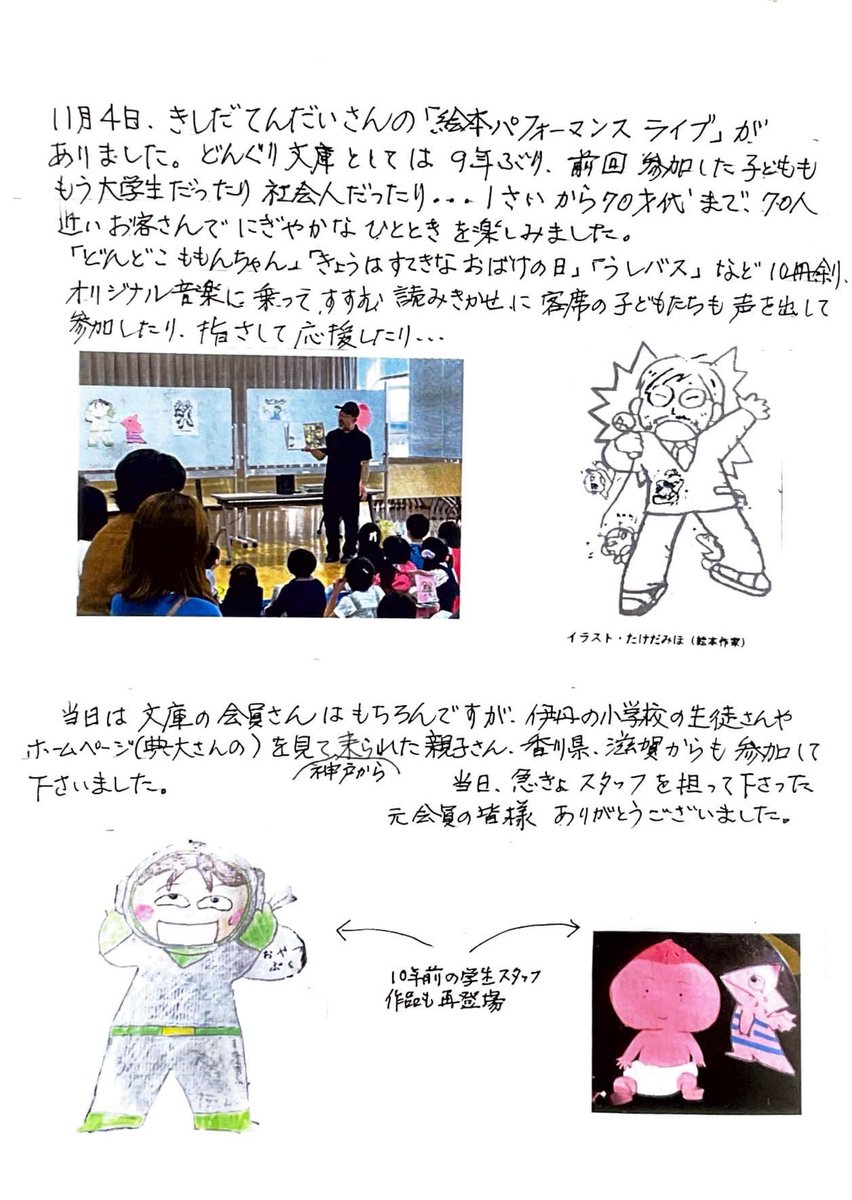 11月4日、きしだてんだいさんの「絵本パフォーマンス ライブ」が
ありました。どんぐり文庫としては9年ぶり、前回参加した子どもも
もう大学生だったり社会人だったり...1さいから70才代まで、70人
近いお客さんでにぎやかなひとときを楽しみました。
「どんどこももんちゃん」「きょうはすてきなおばけの日」「うしバス」など10冊余り、
オリジナル音楽に乗ってすすむ読みきかせに客席の子どもたちも声を出して
参加したり、指さして応援したり...
イラスト・たけだみほ(絵本作家)
当日は文庫の会員さんはもちろんですが、伊丹の小学校の生徒さんや
ホームページ(典大さんの)を見て来られた親子さん、香川県、滋賀からも参加して
神戸から
下さいました。
当日、急きょスタッフを担って下さった
元会員の皆様 ありがとうございました。
おやぷ〜
10年前の学生スタッフ
作品も再登場